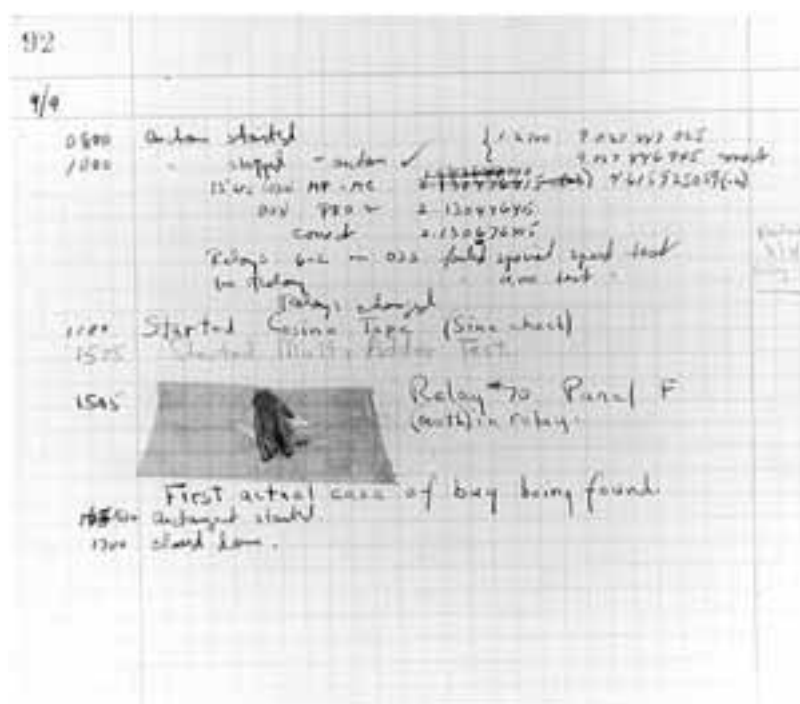 92
9/9
0800 started
1000 " stopped - ✓ 9.037 847 025
9.037 846 995
MP - MC 4.615925059(-2)
PRO 2 2.130476415
correct 2.130676415
Relays 6-2 in 033 failed special speed test
in relay " test "
Relays changed
1100 Started Cosine Tape (Sine check)
1525 Started Mult + Adder Test.
1545 Relay #70 Panel F
(moth) in relay.
First actual case of bug being found.
started.
1700 closed down.